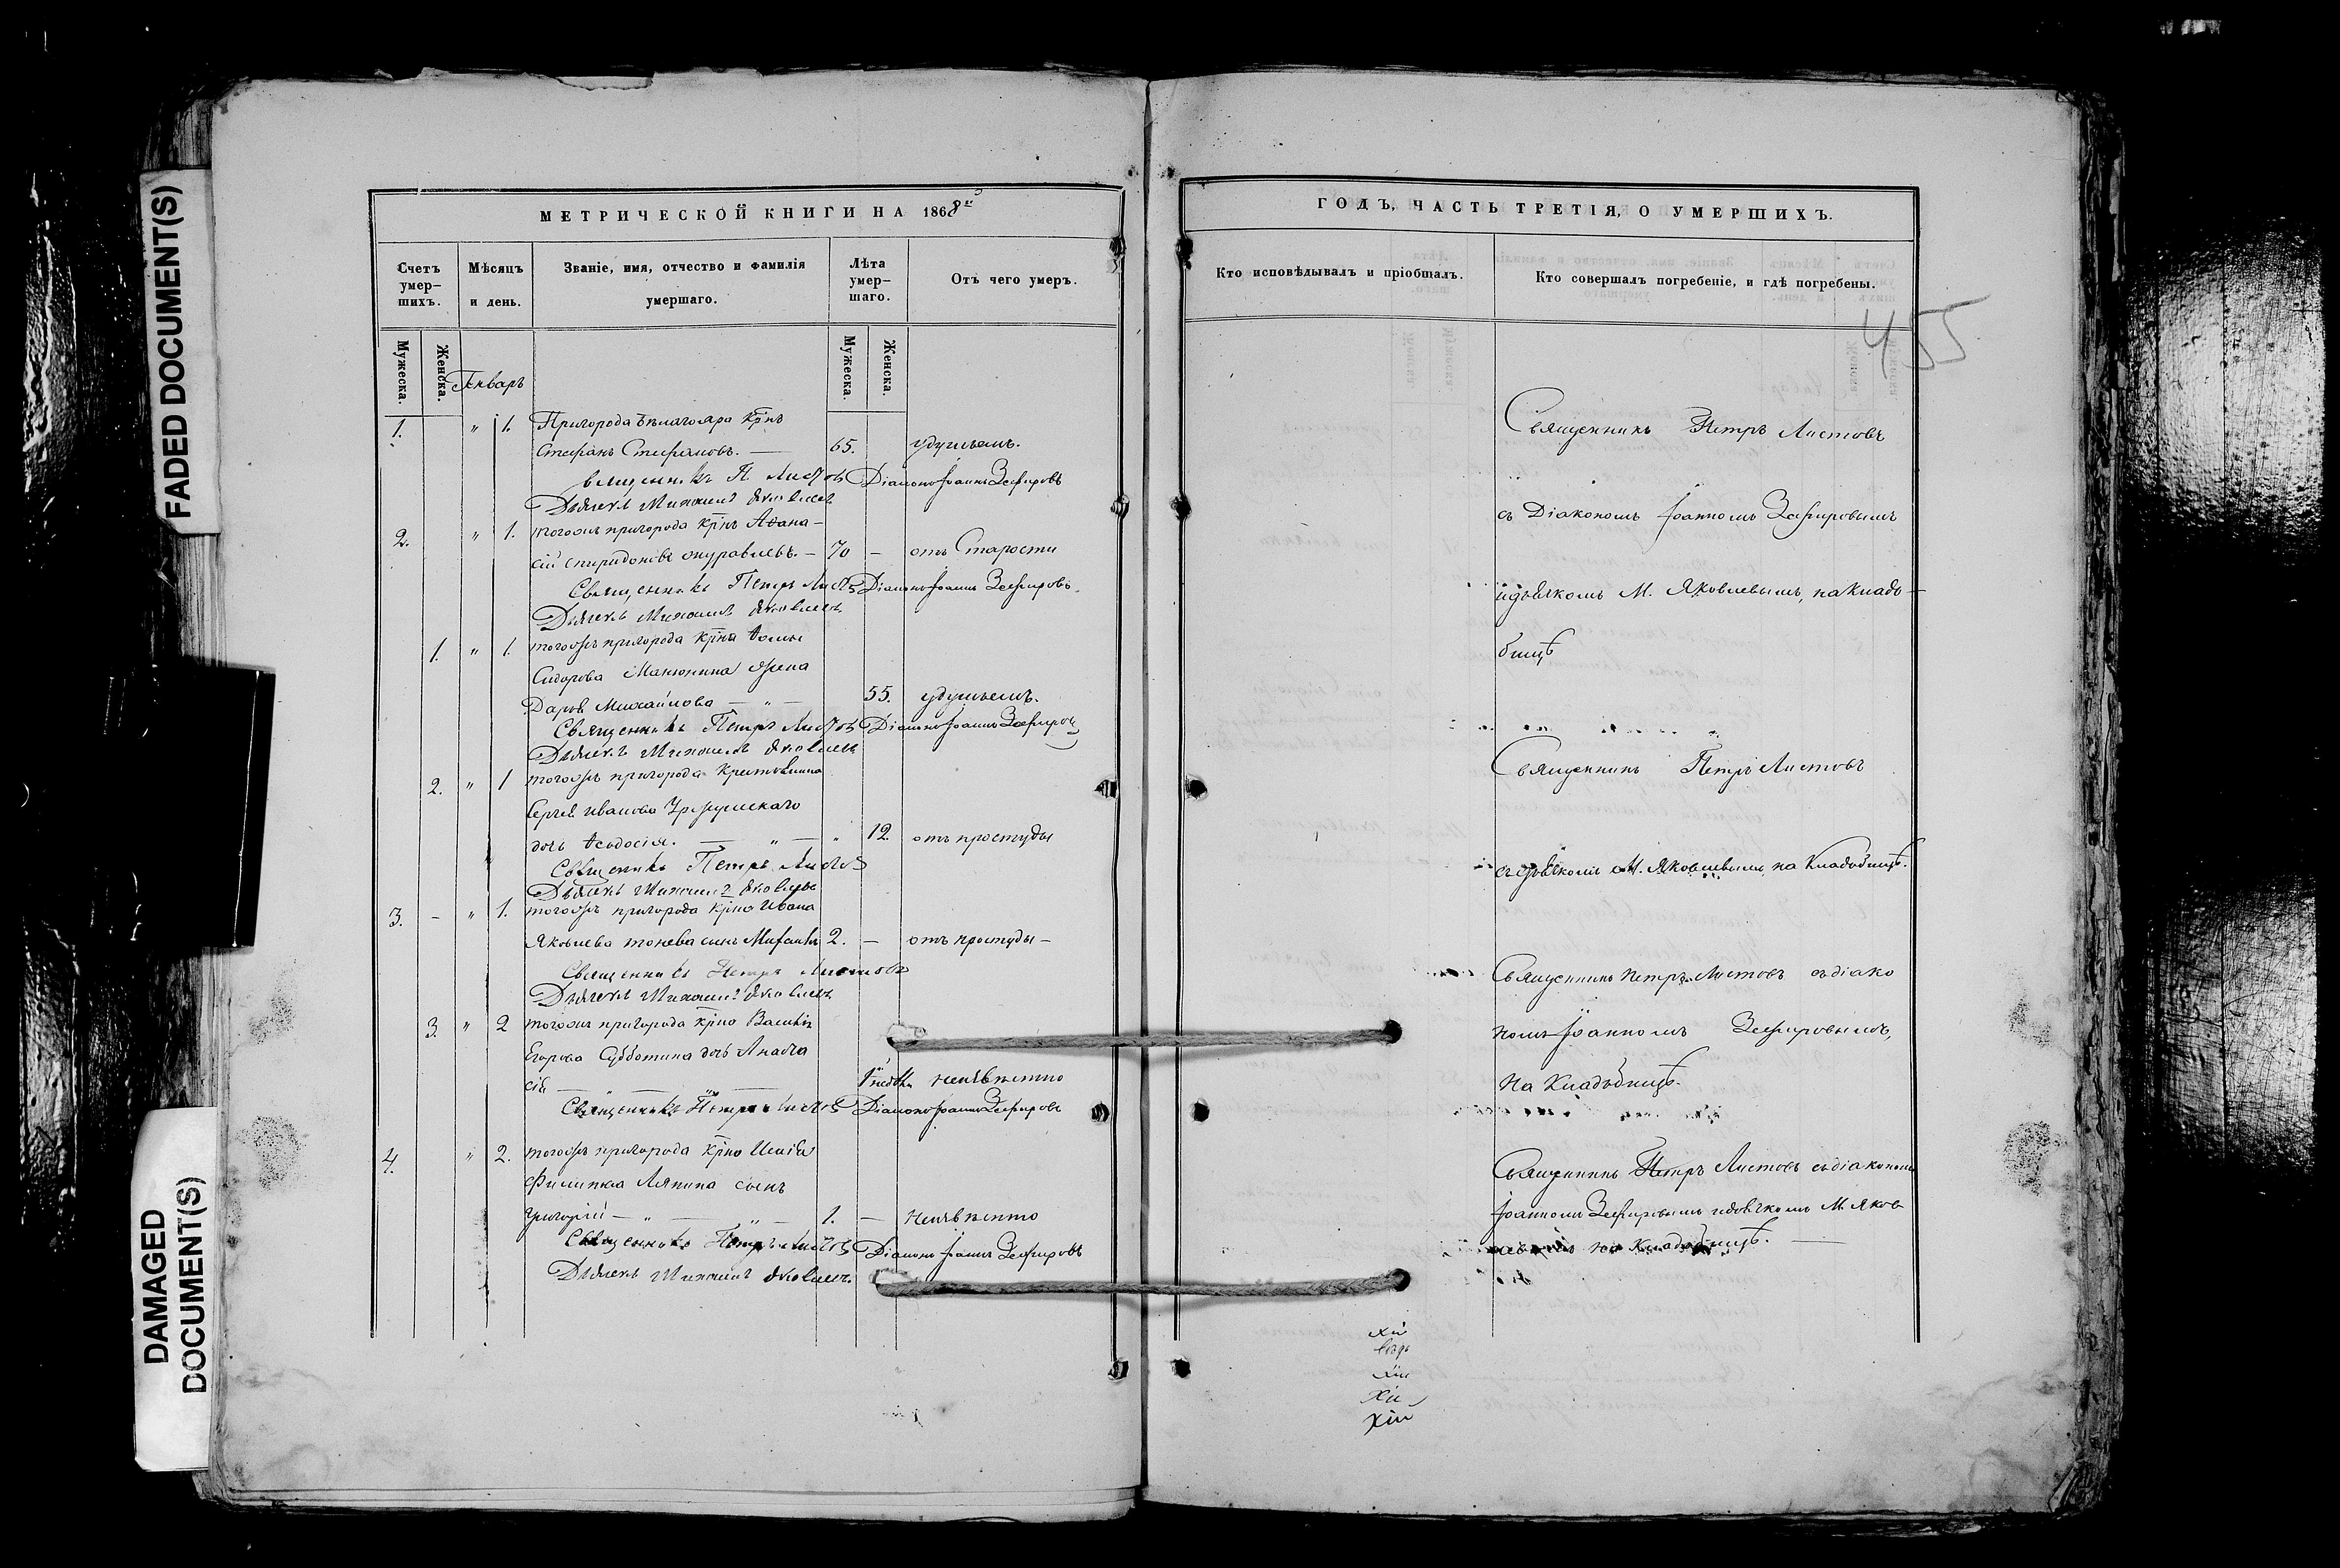 FADED DOCUMENT(S)
DAMAGED DOCUMENT(S)
МЕТРИЧЕСКОЙ КНИГИ НА 1868й
Счетъ умершихъ.
Мѣсяцъ и день.
Званіе, имя, отчество и фамилія умершаго.
Лѣта умершаго.
Отъ чего умеръ.
Мужеска.
Женска.
Мужеска.
Женска.
Генварь
1. " 1. Пригорода Бѣлагояра Кр̅нъ
Стефанъ Стефановъ. — 65. удушьемъ.
Священникъ П Листовъ Діаконъ Іоаннъ Зефировъ
Дьячекъ Михаилъ Яковлевъ
2. " 1. тогожъ пригорода кр̅нъ Аѳана-
сій Спиридоновъ — 70 — отъ Старости
Священникъ Петръ Листовъ Діаконъ Іоаннъ Зефировъ
Дьячекъ Михаилъ Яковлевъ
1. " 1. тогожъ пригорода кр̅на Ѳомы
Сидорова Манюкина жена
Дарья Михайлова — " — 55. удушьемъ.
Священникъ Петръ Листовъ Діаконъ Іоаннъ Зефировъ
Дьячекъ Михаилъ Яковлевъ
2. " 1 тогожъ пригорода Крестьянина
Сергея Иванова
дочь Ѳеодосія. — " — " 12. отъ простуды
Священникъ Петръ Листовъ
Дьячекъ Михаилъ Яковлевъ
3. — " 1. тогожъ пригорода кр̅на Ивана
Яковлева Тонева сынъ 2. — отъ простуды —
Священникъ Петръ Листовъ
Дьячекъ Михаилъ Яковлевъ
3. " 2 тогожъ пригорода кр̅на Василія
Егорова Субботина дочь Анаста
сія — " — " — неизвѣстно
Священникъ Петръ Листовъ Діаконъ Іоаннъ Зефировъ
4. " 2. тогожъ пригорода кр̅на
Филипова Ляпина сынъ
Григорій — " — " — 1. — Неизвѣстно
Священникъ Петръ Листовъ Діаконъ Іоаннъ Зефировъ
Дьячекъ Михаилъ Яковлевъ.
ГОДЪ, ЧАСТЬ ТРЕТІЯ, О УМЕРШИХЪ.
Кто исповѣдывалъ и пріобщалъ.
Кто совершалъ погребеніе, и гдѣ погребены.
455
Священникъ Петръ Листовъ
съ Діакономъ Іоанномъ Зефировымъ
и дьячкомъ М. Яковлевымъ, на кладъ-
бищѣ
Священникъ Петръ Листовъ
съ дьячкомъ М. Яковлевымъ, на Кладъбищѣ.
Священникъ Петръ Листовъ съ діако
номъ Іоанномъ Зефировымъ,
На Кладъбищѣ.
Священникъ Петръ Листовъ съ діакономъ
Іоанномъ Зефировымъ и дьячкомъ М. Яков
левымъ на Кладъбищѣ. —